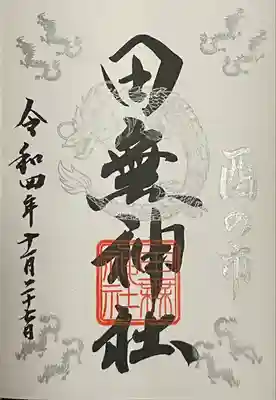 酉の市
田無神社
令和四年十一月二十七日